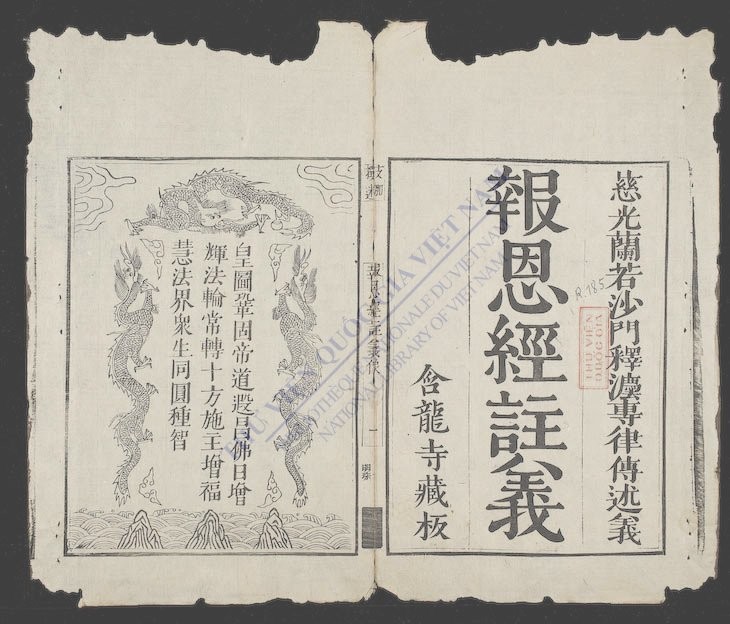 慈光蘭若沙門釋濂專律傳述義
報恩經註義
含龍寺藏板
R.785
THƯ VIỆN
QUỐC GIA
報恩經註義
一
皇圖鞏固帝道遐昌佛日增
輝法輪常轉十方施主增福
慧法界衆生同圓種智
THƯ VIỆN QUỐC GIA VIỆT NAM
BIBLIOTHÈQUE NATIONALE DU VIETNAM
NATIONAL LIBRARY OF VIETNAM